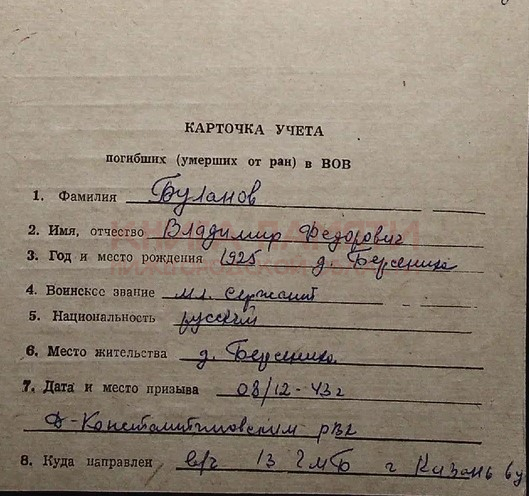 КАРТОЧКА УЧЕТА
погибших (умерших от ран) в ВОВ
1. Фамилия Буланов
2. Имя, отчество Владимир Федорович
3. Год и место рождения 1925 д. Березники
4. Воинское звание мл. сержант
5. Национальность русский
6. Место жительства д. Березники
7. Дата и место призыва 08/12-43г
Д-Константиновским РВК
8. Куда направлен в/ч 13 г Казань